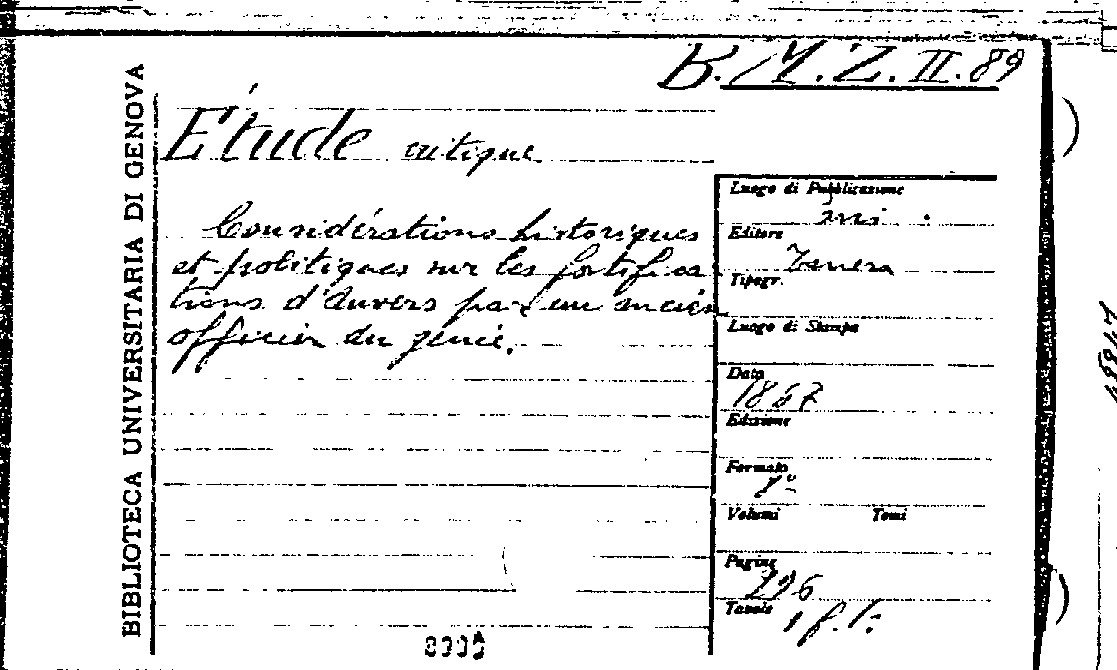 B.M.Z. II. 89
BIBLIOTECA UNIVERSITARIA DI GENOVA
Étude critique
Considérations historiques
et politiques sur les fortifica
tions d'Anvers par un ancien
officier du génie.
Luogo di Pubblicazione
Editore
Tanera
Tipogr.
Luogo di Stampa
Data
1867
Edizione
Formato
8°
Volumi Tomi
Pagine
296
Tavole
1 f. t.